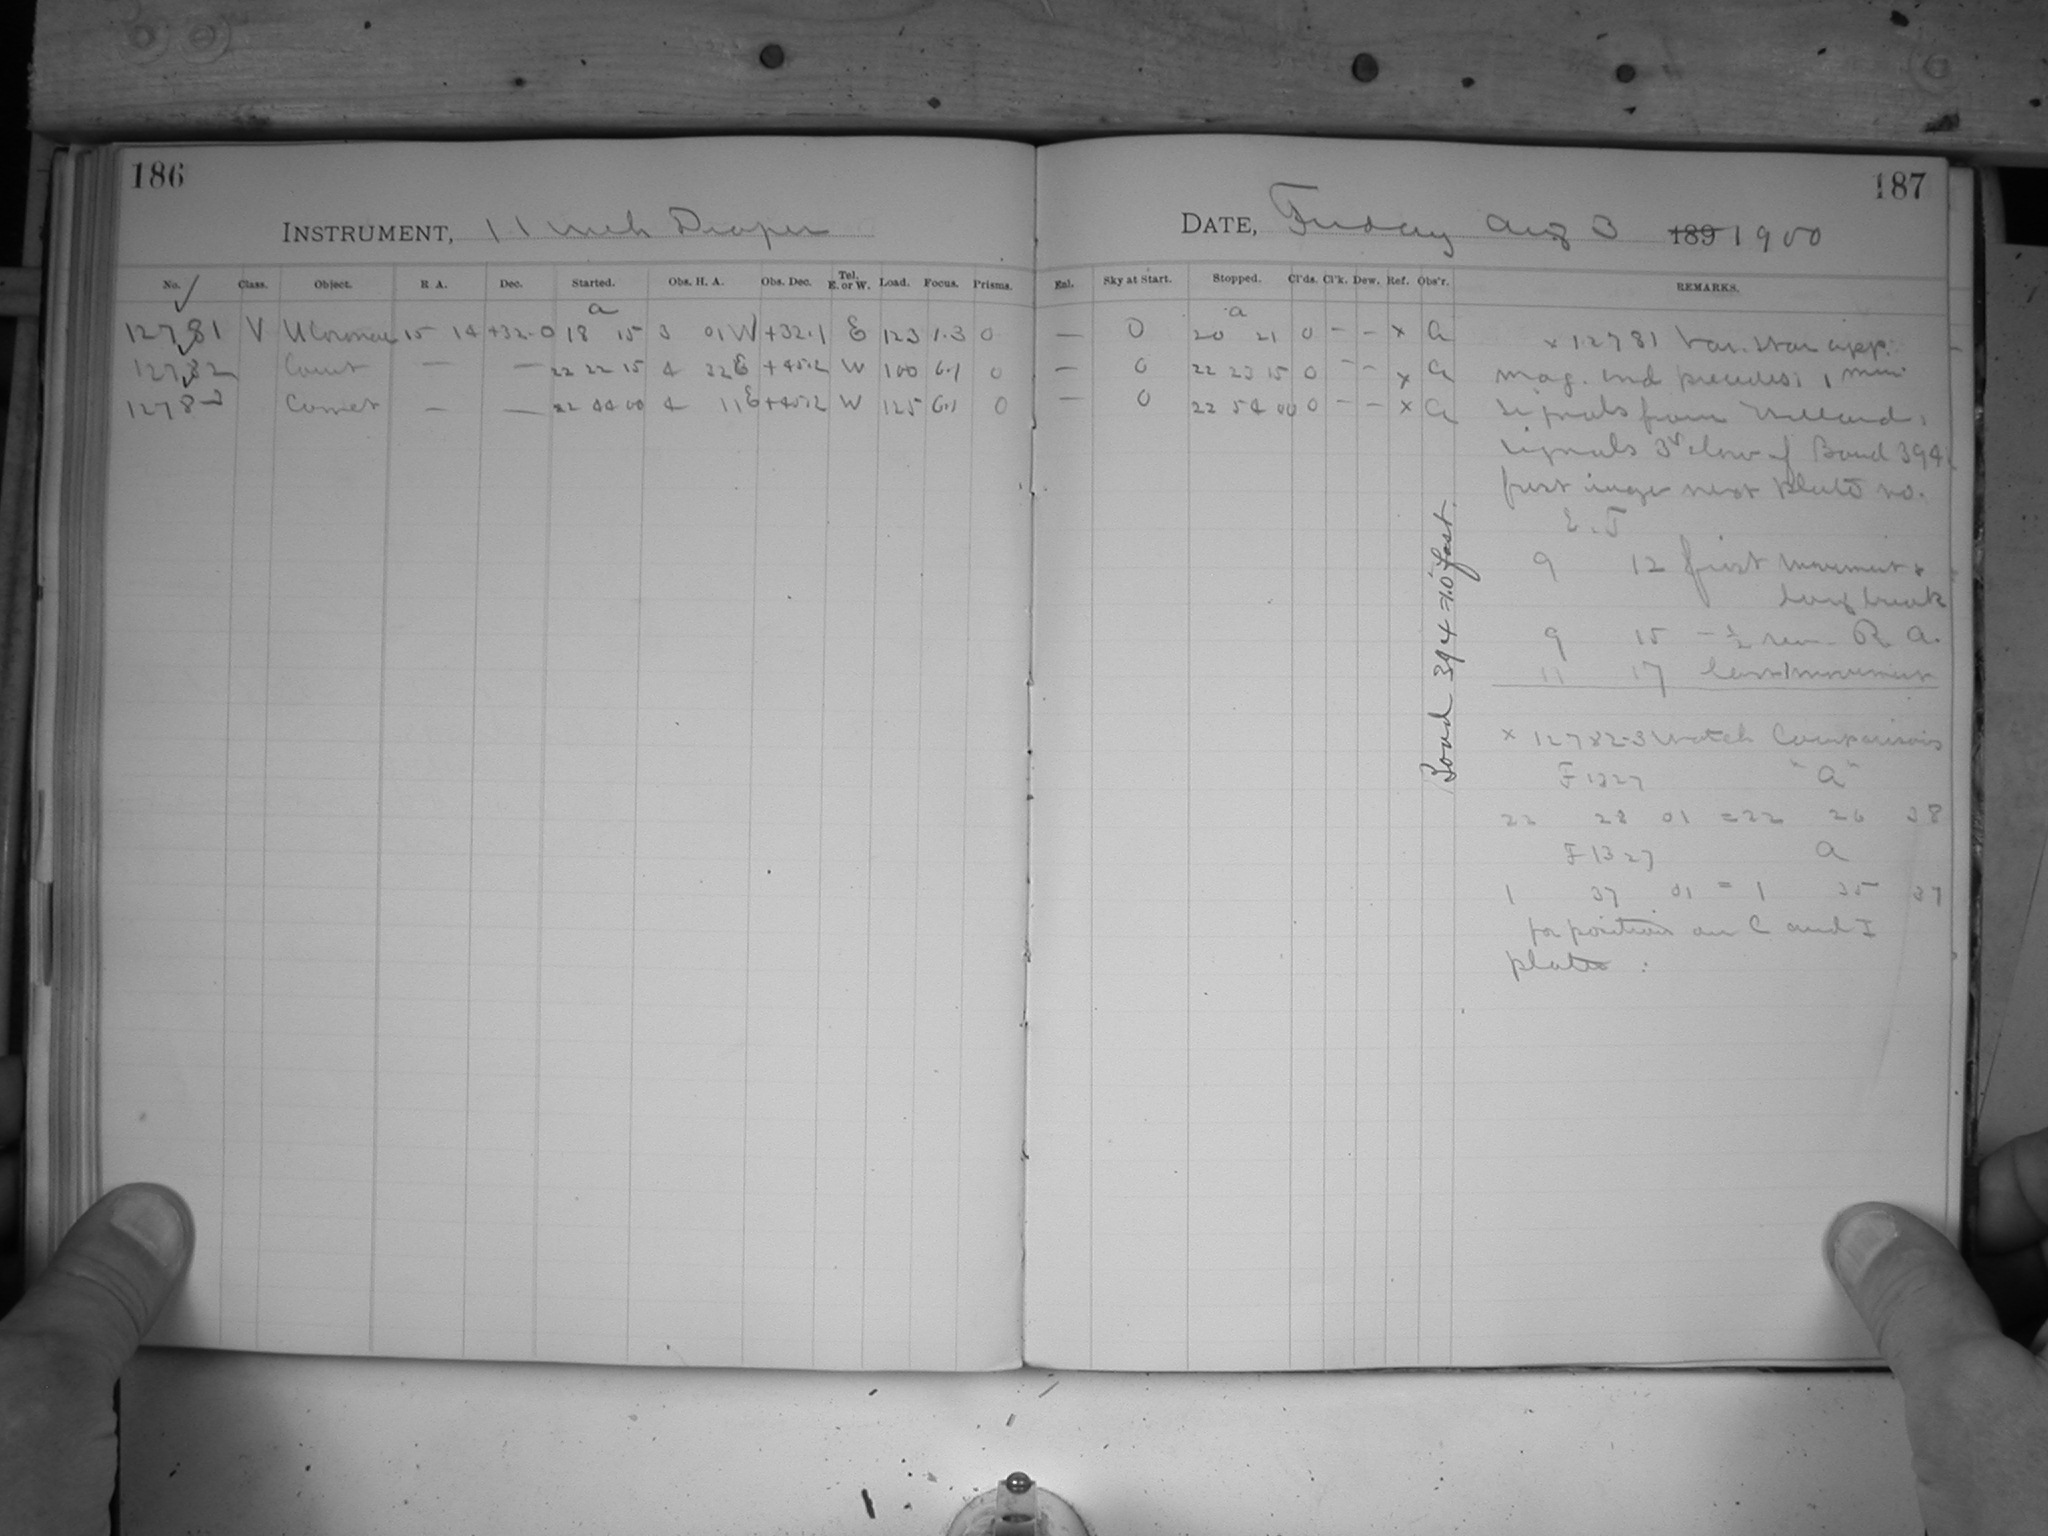 186
INSTRUMENT, 11 inch Draper
No. Class. Object. R A. Dec. Started. Obs. H. A. Obs. Dec. Tel. E. or W. Load. Focus. Prisms.
a
12781 V U Coronae 15 14 +32.0 18 15 3 01 W +32.1 E 123 1.3 0
12782 Comet — — 22 22 15 4 32 E +45.2 W 100 6.1 0
12783 Comet — — 22 44 00 4 11 E +45.2 W 125 6.1 0
187
DATE, Friday Aug 3 189 1900
Enl. Sky at Start. Stopped. Cl'ds. Cl'k. Dew. Ref. Obs'r. REMARKS.
a
— 0 20 21 0 - - x a
— 0 22 23 15 0 - - x a
— 0 22 54 00 0 - - x a
x 12781 Var. star app.
mag. and precedes 1 min
signals from Willard,
signals 3s slow of Bond 394
first image next plate no.
E. T
9 12 first movement &
long break
9 15 - ½ rev. R. A.
11 17 last movement
x 12782-3 Watch Comparisons
F 1327 "A"
22 28 01 = 22 26 38
F 1327 A
1 37 01 = 1 35 37
for position on C and I
plates :
Bond 394 = 1.0 fast.